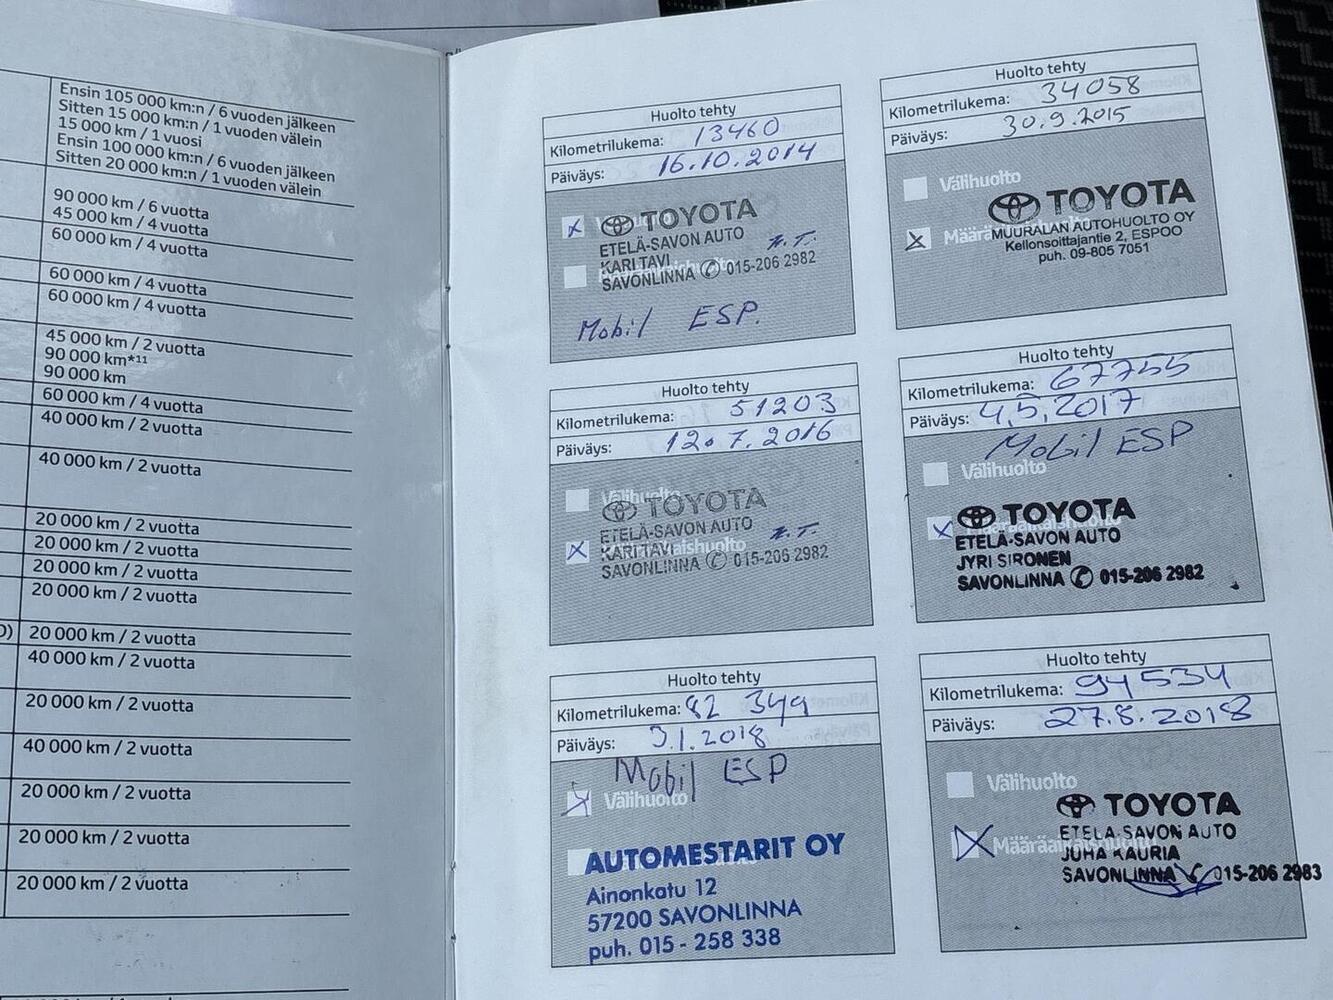 Ensin 105 000 km:n / 6 vuoden jälkeen
Sitten 15 000 km:n / 1 vuoden välein
15 000 km / 1 vuosi
Ensin 100 000 km:n / 6 vuoden jälkeen
Sitten 20 000 km:n / 1 vuoden välein
90 000 km / 6 vuotta
45 000 km / 4 vuotta
60 000 km / 4 vuotta
60 000 km / 4 vuotta
60 000 km / 4 vuotta
45 000 km / 2 vuotta
90 000 km*11
90 000 km
60 000 km / 4 vuotta
40 000 km / 2 vuotta
40 000 km / 2 vuotta
20 000 km / 2 vuotta
20 000 km / 2 vuotta
20 000 km / 2 vuotta
20 000 km / 2 vuotta
20 000 km / 2 vuotta
40 000 km / 2 vuotta
20 000 km / 2 vuotta
40 000 km / 2 vuotta
20 000 km / 2 vuotta
20 000 km / 2 vuotta
20 000 km / 2 vuotta
Huolto tehty
Kilometrilukema: 13460
Päiväys: 16.10.2014
TOYOTA
ETELÄ-SAVON AUTO
KARI TAVI
SAVONLINNA 015-206 2982
Mobil ESP.
Huolto tehty
Kilometrilukema: 34058
Päiväys: 30.9.2015
Välihuolto
TOYOTA
MUURALAN AUTOHUOLTO OY
Kellonsoittajantie 2, ESPOO
puh. 09-805 7051
Huolto tehty
Kilometrilukema: 51203
Päiväys: 12.7.2016
Välihuolto
TOYOTA
ETELÄ-SAVON AUTO
KARI TAVI
SAVONLINNA 015-206 2982
Huolto tehty
Kilometrilukema: 67755
Päiväys: 4.5.2017
Mobil ESP
Välihuolto
TOYOTA
ETELÄ-SAVON AUTO
JYRI SIRONEN
SAVONLINNA 015-206 2982
Huolto tehty
Kilometrilukema: 82 349
Päiväys: 3.1.2018
Mobil ESP
Välihuolto
AUTOMESTARIT OY
Ainonkatu 12
57200 SAVONLINNA
puh. 015 - 258 338
Huolto tehty
Kilometrilukema: 94534
Päiväys: 27.8.2018
Välihuolto
Määräaikaishuolto
TOYOTA
ETELÄ-SAVON AUTO
JUHA KAURIA
SAVONLINNA 015-206 2983